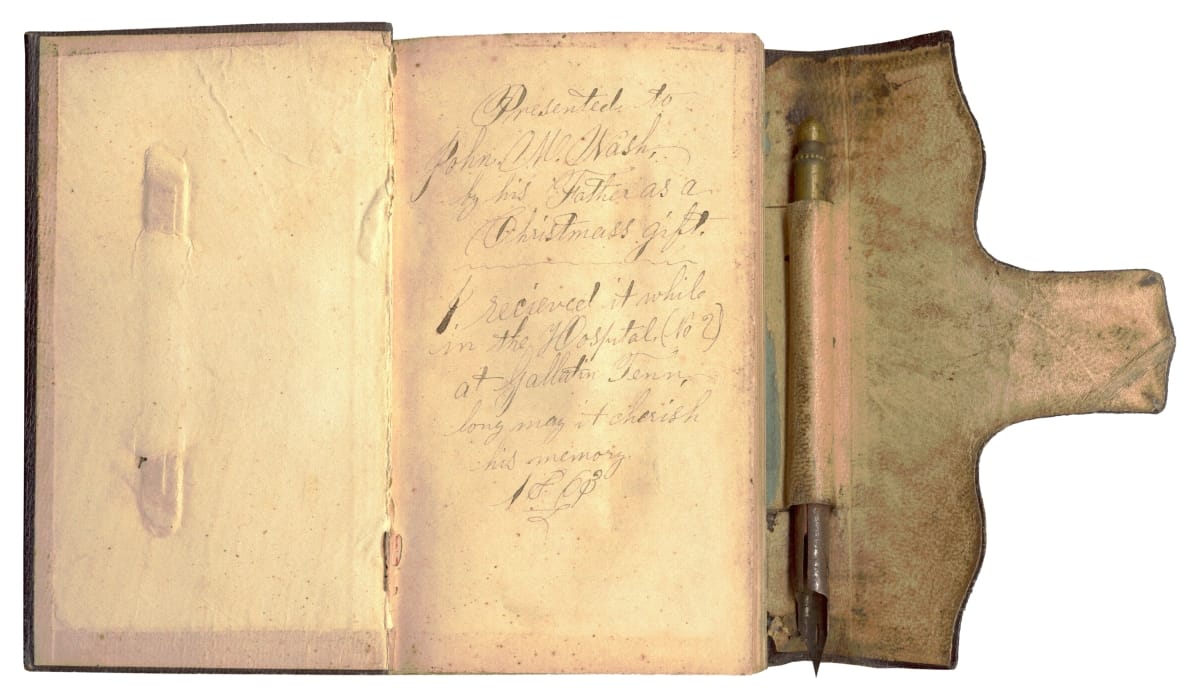 Presented to
John M. Wash,
by his Father as a
Christmass gift.
I recieved it while
in the Hospital (No 2)
at Gallatin Tenn,
long may it cherish
his memory.
1863